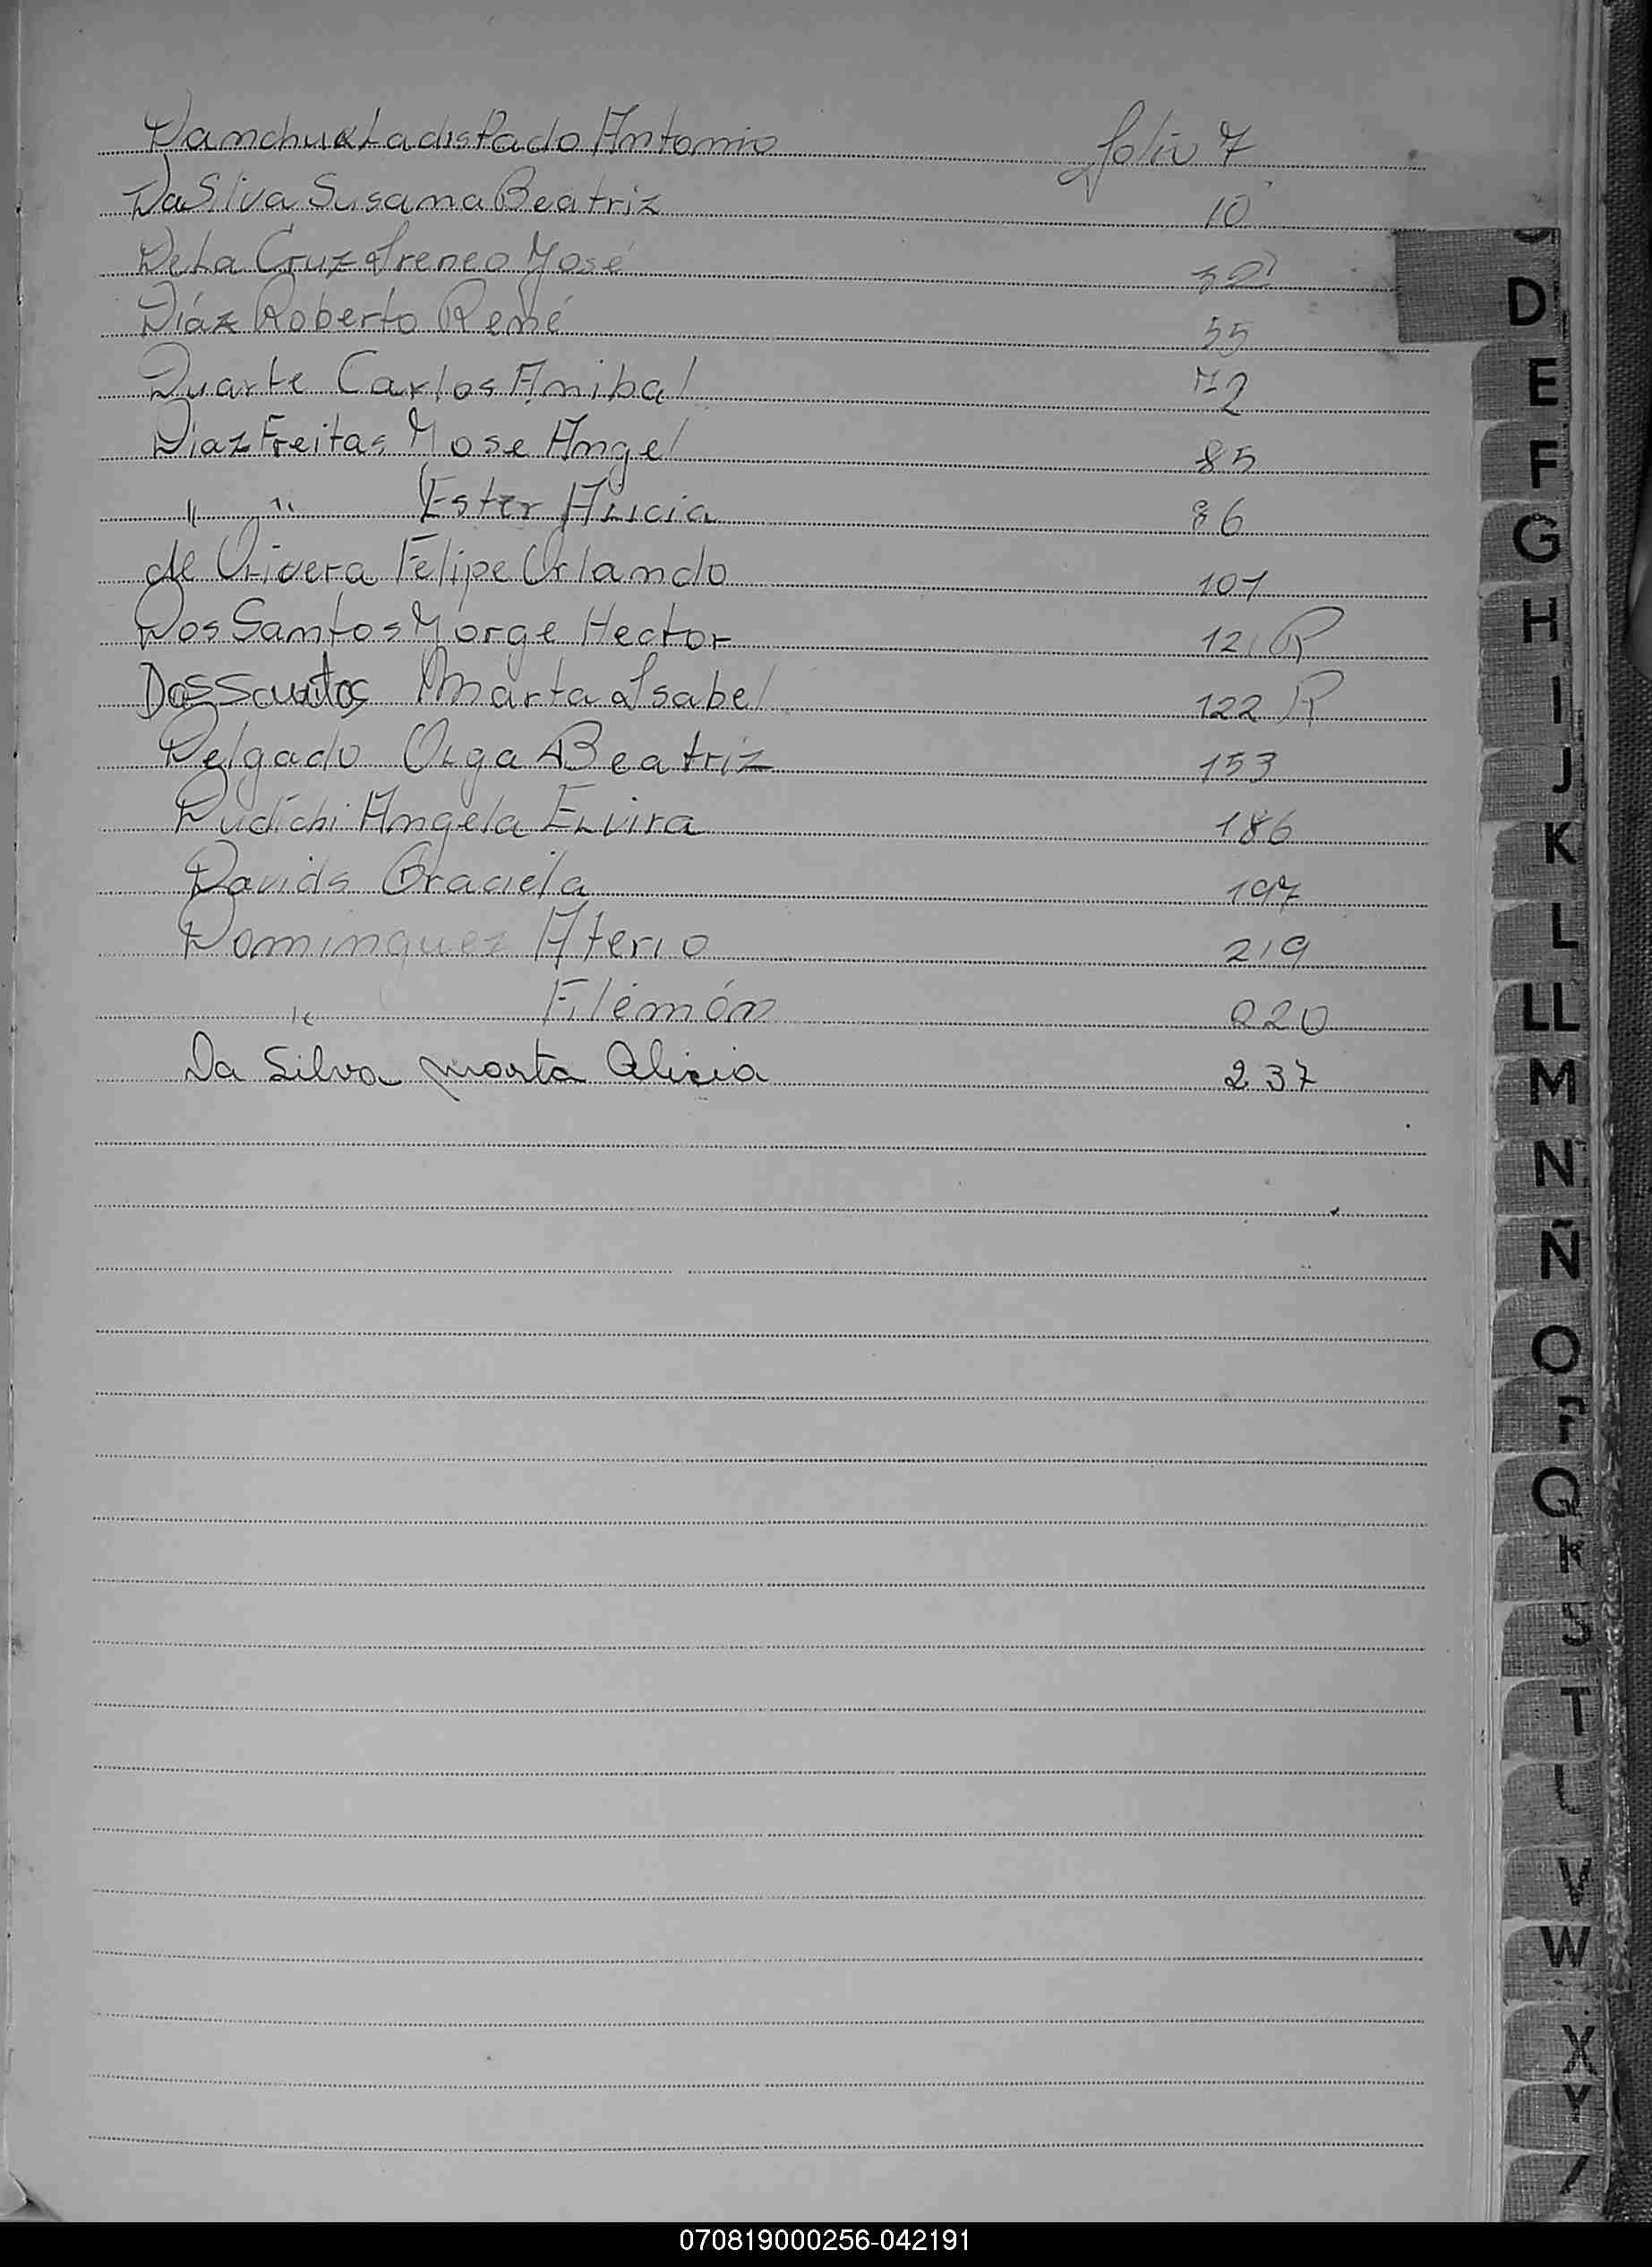 Danchuk Ladislado Antonio folio 7
Da Silva Susana Beatriz 10
De La Cruz Ireneo José 32
Díaz Roberto René 55
Duarte Carlos Anibal 72
Diaz Freitas Jose Angel 85
" " Ester Alicia 86
de Olivera Felipe Orlando 107
Dos Santos Jorge Hector 121 R
Dos Santos Marta Isabel 122 R
Delgado Olga Beatriz 153
Dudichi Angela Elvira 186
Davids Graciela 197
Dominguez Aterio 219
" Filemón 220
Da Silva Marta Alicia 237
D
E
F
G
H
I
J
K
L
LL
M
N
Ñ
O
P
Q
R
S
T
U
V
W
X
Y
070819000256-042191